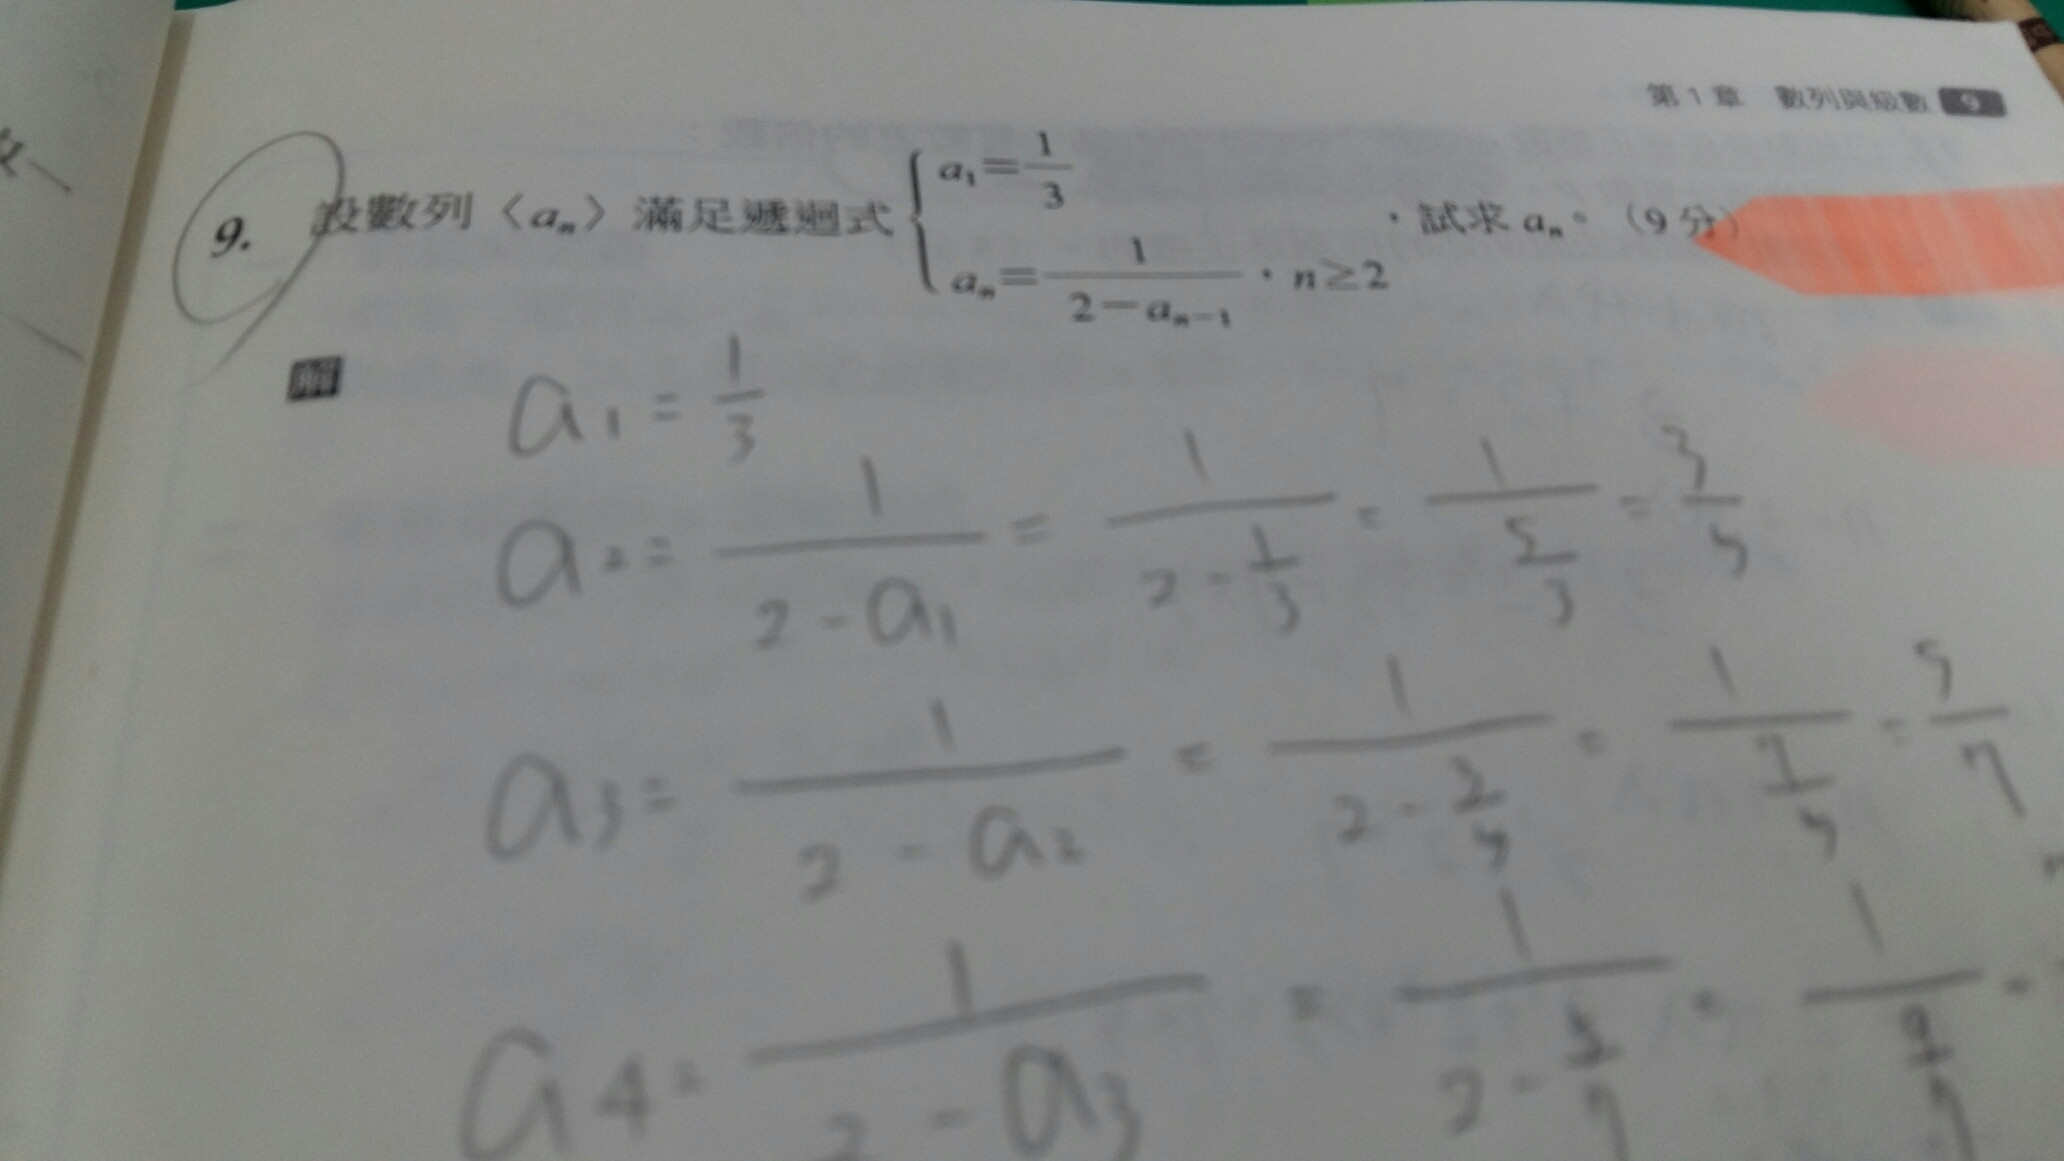 第1章 數列與級數 9
9. 設數列〈aₙ〉滿足遞迴式 { a₁=1/3 , aₙ=1/(2-aₙ₋₁),n≥2 ,試求 aₙ。(9分)
解
a₁ = 1/3
a₂ = 1/(2-a₁) = 1/(2-1/3) = 1/(5/3) = 3/5
a₃ = 1/(2-a₂) = 1/(2-3/5) = 1/(7/5) = 5/7
a₄ = 1/(2-a₃) = 1/(2-5/7) = 1/(9/7) =